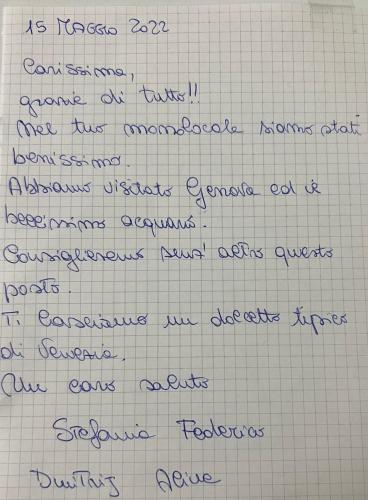 15 MAGGIO 2022
Carissima,
grazie di tutto!!
Nel tuo monolocale siamo stati
benissimo.
Abbiamo visitato Genova ed è
bellissimo acquario.
Consiglieremo senz'altro questo
posto.
Ti lasciamo un dolcetto tipico
di Venezia.
Un caro saluto
Stefania Federico
Dmitrij Alina